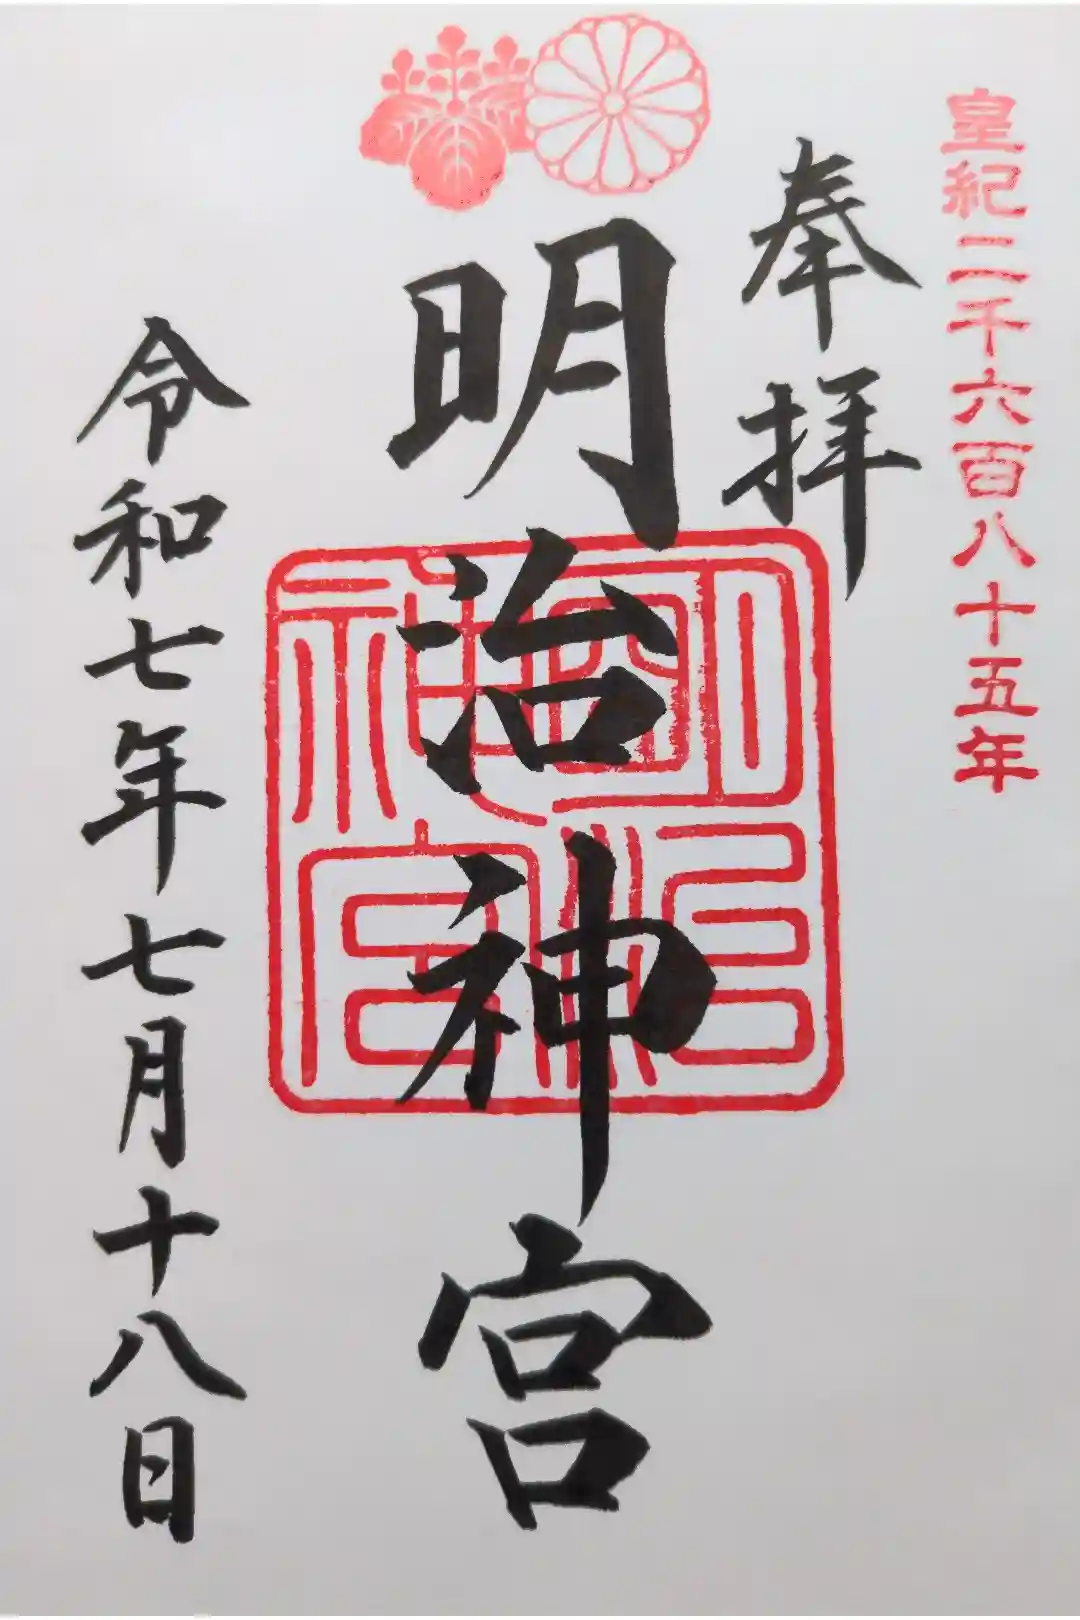 皇紀二千六百八十五年
奉拝
明治神宮
明治神宮
令和七年七月十八日